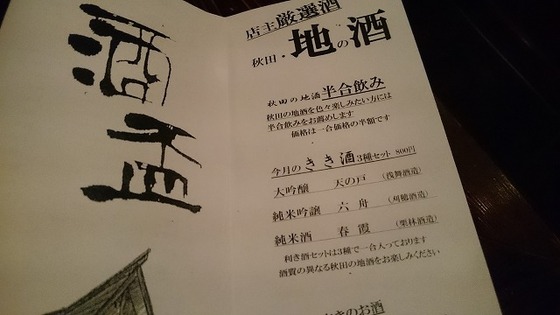 酒盃
店主厳選酒
秋田・地の酒
秋田の地酒半合飲み
秋田の地酒を色々楽しみたい方には
半合飲みをお薦めします
価格は一合価格の半額です
今月のきき酒3種セット 800円
大吟醸 天の戸 (浅舞酒造)
純米吟醸 六舟 (刈穂酒造)
純米酒 春霞 (栗林酒造)
利き酒セットは3種で一合入っております
酒質の異なる秋田の地酒をお楽しみください
きのお酒